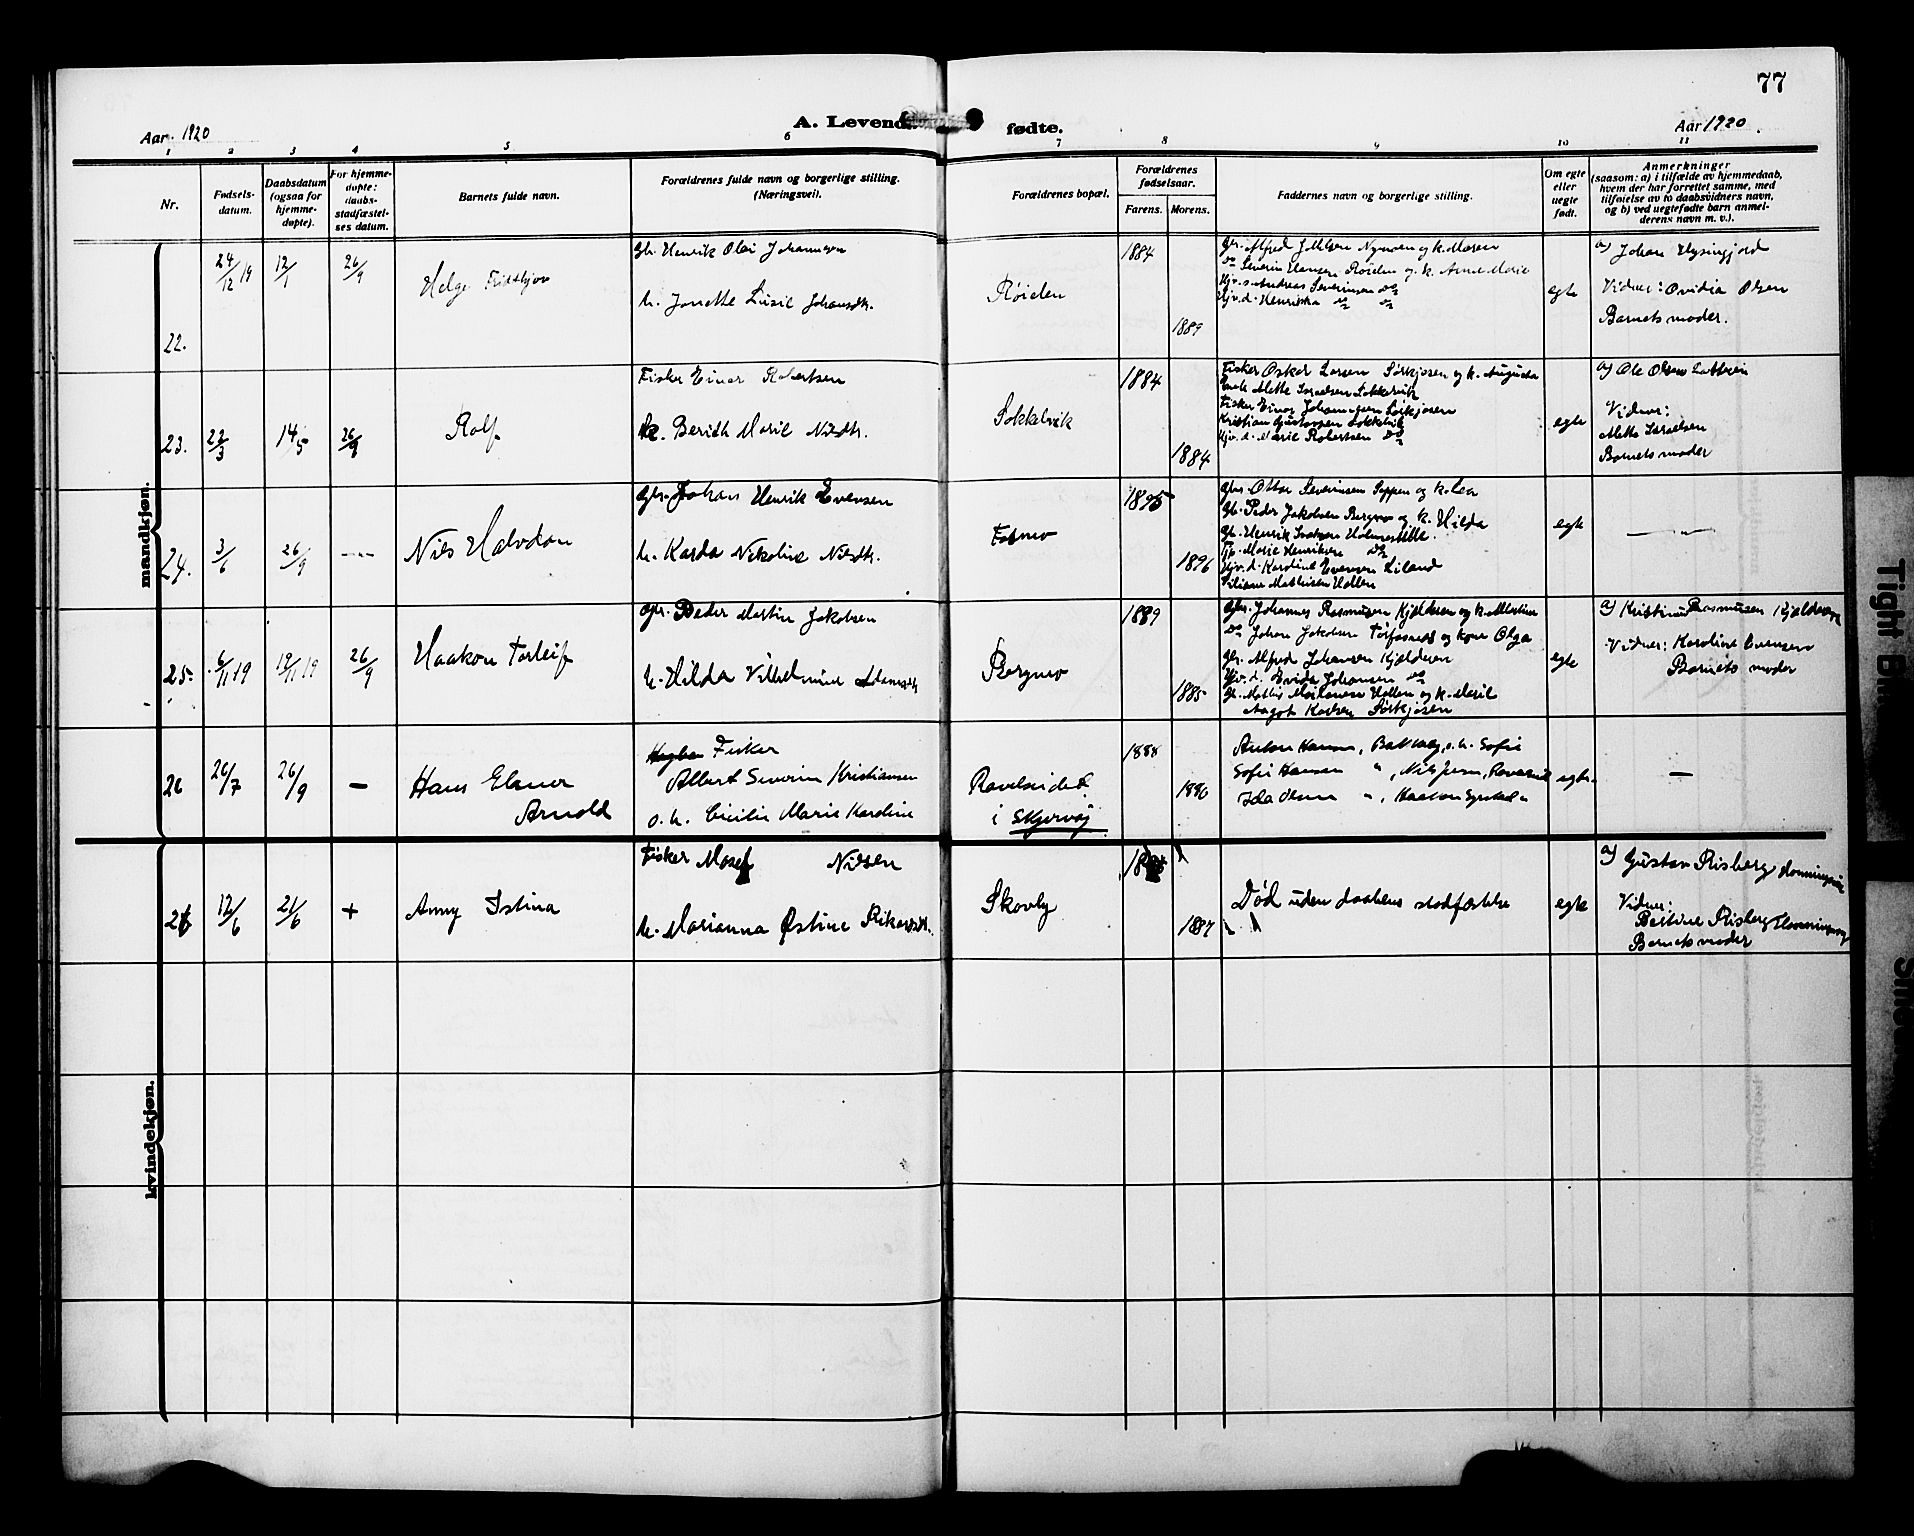 77
Aar 1920
A. Levend
fødte.
Aar 1920
1 2 3 4 5 6 7 8 9 10 11
Nr.
Fødsels-
datum.
Daabsdatum
(ogsaa for
hjemme-
døpte).
For hjemme-
døpte:
daabs-
stadfæstel-
ses datum.
Barnets fulde navn.
Forældrenes fulde navn og borgerlige stilling.
(Næringsvei).
Forældrenes bopæl.
Forældrenes
fødselsaar.
Farens. Morens.
Faddernes navn og borgerlige stilling.
Om egte
eller
uegte
født.
Anmerkninger
(saasom: a) i tilfælde av hjemmedaab,
hvem der har forrettet samme, med
tilføielse av to daabsvidners navn,
og b) ved uegtefødte barn anmel-
derens navn m. v.).
mandkjøn.
22.
24/12 19
12/1
26/9
Helge Fridthjov
Gbr. Henrik Olai Johannesen
h. Janette Lusie Johansdtr.
Røielen
1884
1889
Gbr. Alfred
Do Severin Hansen Røielen og k. Anne Marie
Hjv. s. Andreas Severinsen Do
Hjv. d. Henrikka Do Do
egte
a) Johan
Vidner: Ovidia Olsen
Barnets moder.
23.
22/3
14/5
26/9
Rolf
Fisker Einar Robertsen
h. Berith Marie Nilsdtr.
Sokkelvik
1884
1884
Fisker Oskar Larsen Sørkjosen og k. Augusta
Enke Mette Israelsen Sokkelvik
Fisker Einar Johannesen Sørkjosen
Kristian Gustavsen Sokkelvik
Hjv. d. Marie Robertsen Do
egte
a) Ole Olsen
Vidner:
Mette Israelsen
Barnets moder
24.
3/6
26/9
---
Nils Halvdan
Gbr. Johan Henrik Evensen
h. Karda Nikoline Nilsdtr.
1895
1896
Gbr. Ottar Severinsen Soppen og k. Lea
Gb. Peder Jakobsen Bergmo og k. Hilda
Gb. Henrik Isaksen
Tj. Marie Henriksen Do
Hjv. d. Karoline Evensen Eiland
Mathisen Hallen
egte
— " —
25.
6/11 19
19/11 19
26/9
Haakon Torleif
Gbr. Peder Martin Jakobsen
h. Hilda Vilhelmine Adamsdtr
Bergmo
1889
1885
Gbr. Johannes Rasmusen Kjelderen og k. Albertine
Do Johan Jakobsen Torfosnes og kone Olga
Gbr. Alfred Johansen Kjelderen
Hjv. d. Evida Johansen Do
Gb. Mathis Hallen og k. Marie
Aagot Karlsen Sørkjosen
egte
a) Kristine Rasmusen Kjelderen
Vidner: Karoline Evensen
Barnets moder
26
26/7
26/9
—
Hans Elmer
Arnold
Fisker
Albert Severin Kristiansen
o. h. Cecilie Marie Karoline
Ravelseidet
i Skjervøy
1888
1886
Anton Hansen, Bakkeby, o. h. Sofie
Sofie Hansen ", Nils Jensen, Ravelseid
Ida Olsen ", Haakon "
egte.
—
kvindekjøn.
26
12/6
21/6
+
Anny Istina
Fisker Mosef Nilsen
h. Marianna Østine Rikardsdtr.
Skovly
1887
Død uden daabens stadfæstelse
egte
a) Gustav Risberg Hamningvik
Vidner:
Bertine Risberg
Barnets moder
Tight Bi